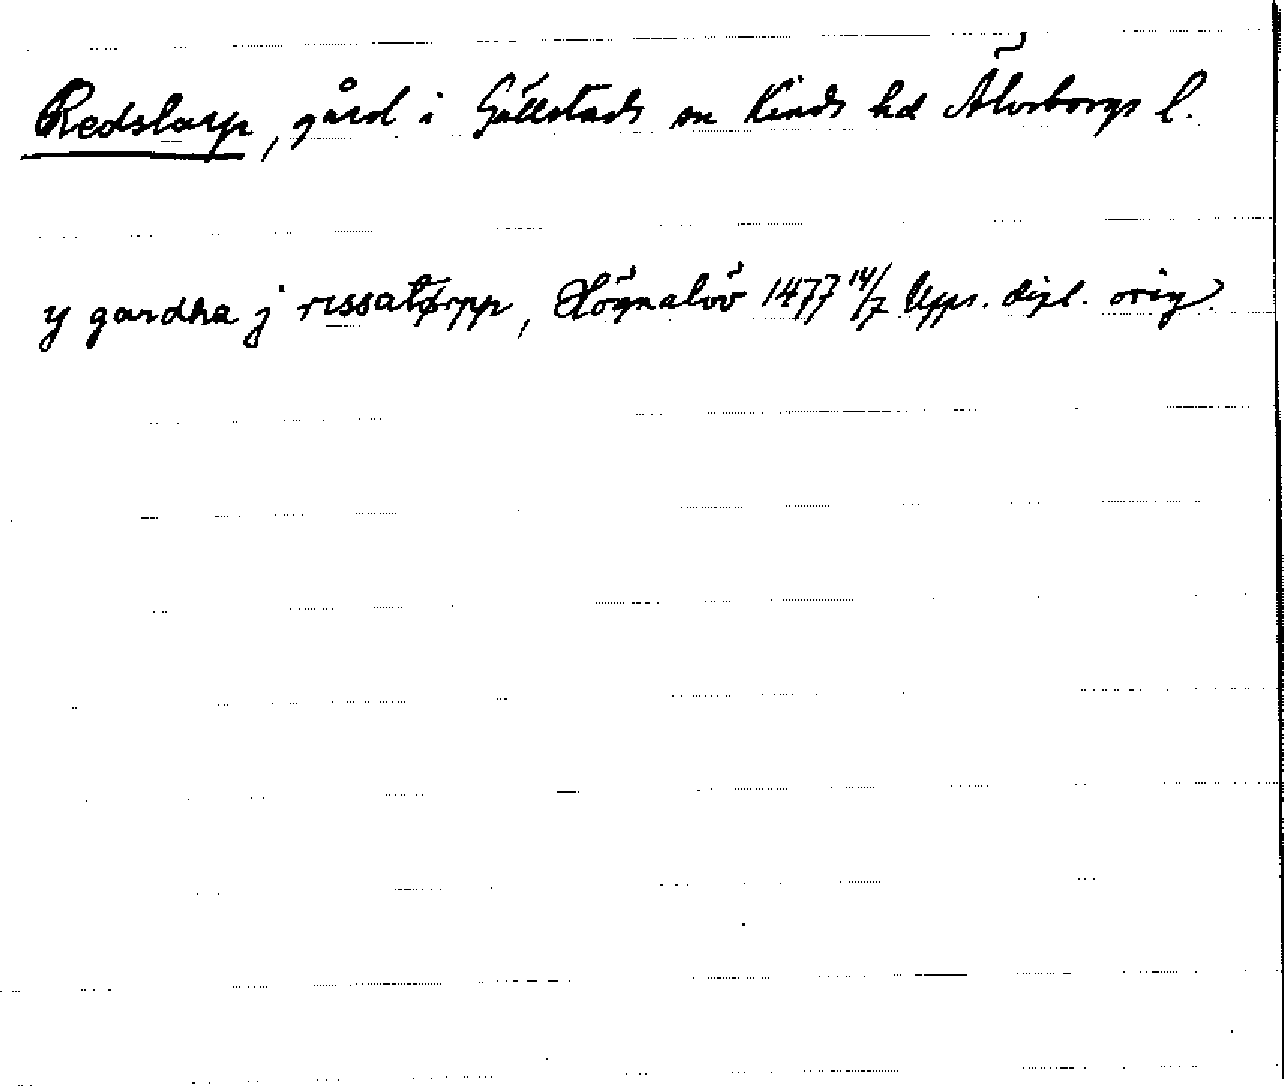 Redslarp, gård i Gällstads sn Kinds hd Älvsborgs l.
y gardha j rissatørpp, Högnalöv 1477 14/7 Upps. dipl. orig.